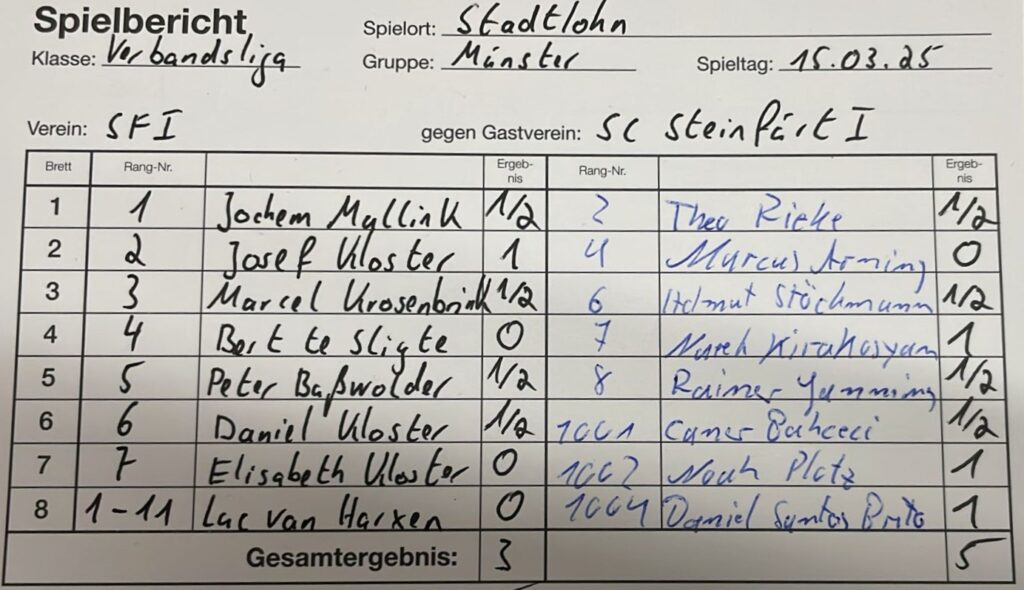 Spielbericht Spielort: Stadtlohn
Klasse: Verbandsliga Gruppe: Münster Spieltag: 15.03.25
Verein: SF I gegen Gastverein: SC Steinfurt I
Brett Rang-Nr. Ergeb-nis Rang-Nr. Ergeb-nis
1 1 Jochem Myllink 1/2 2 Theo Rieke 1/2
2 2 Josef Kloster 1 4 Marcus Arming 0
3 3 Marcel Krosenbrink 1/2 6 Helmut Stöchmann 1/2
4 4 Bert te Sligte 0 7 Narek Kirakosyan 1
5 5 Peter Baßwolder 1/2 8 Rainer Jamming 1/2
6 6 Daniel Kloster 1/2 1001 Caner Bahceci 1/2
7 7 Elisabeth Kloster 0 1002 Noah Plotz 1
8 1-11 Luc van Harxen 0 1004 Daniel Santos Brito 1
Gesamtergebnis: 3 5